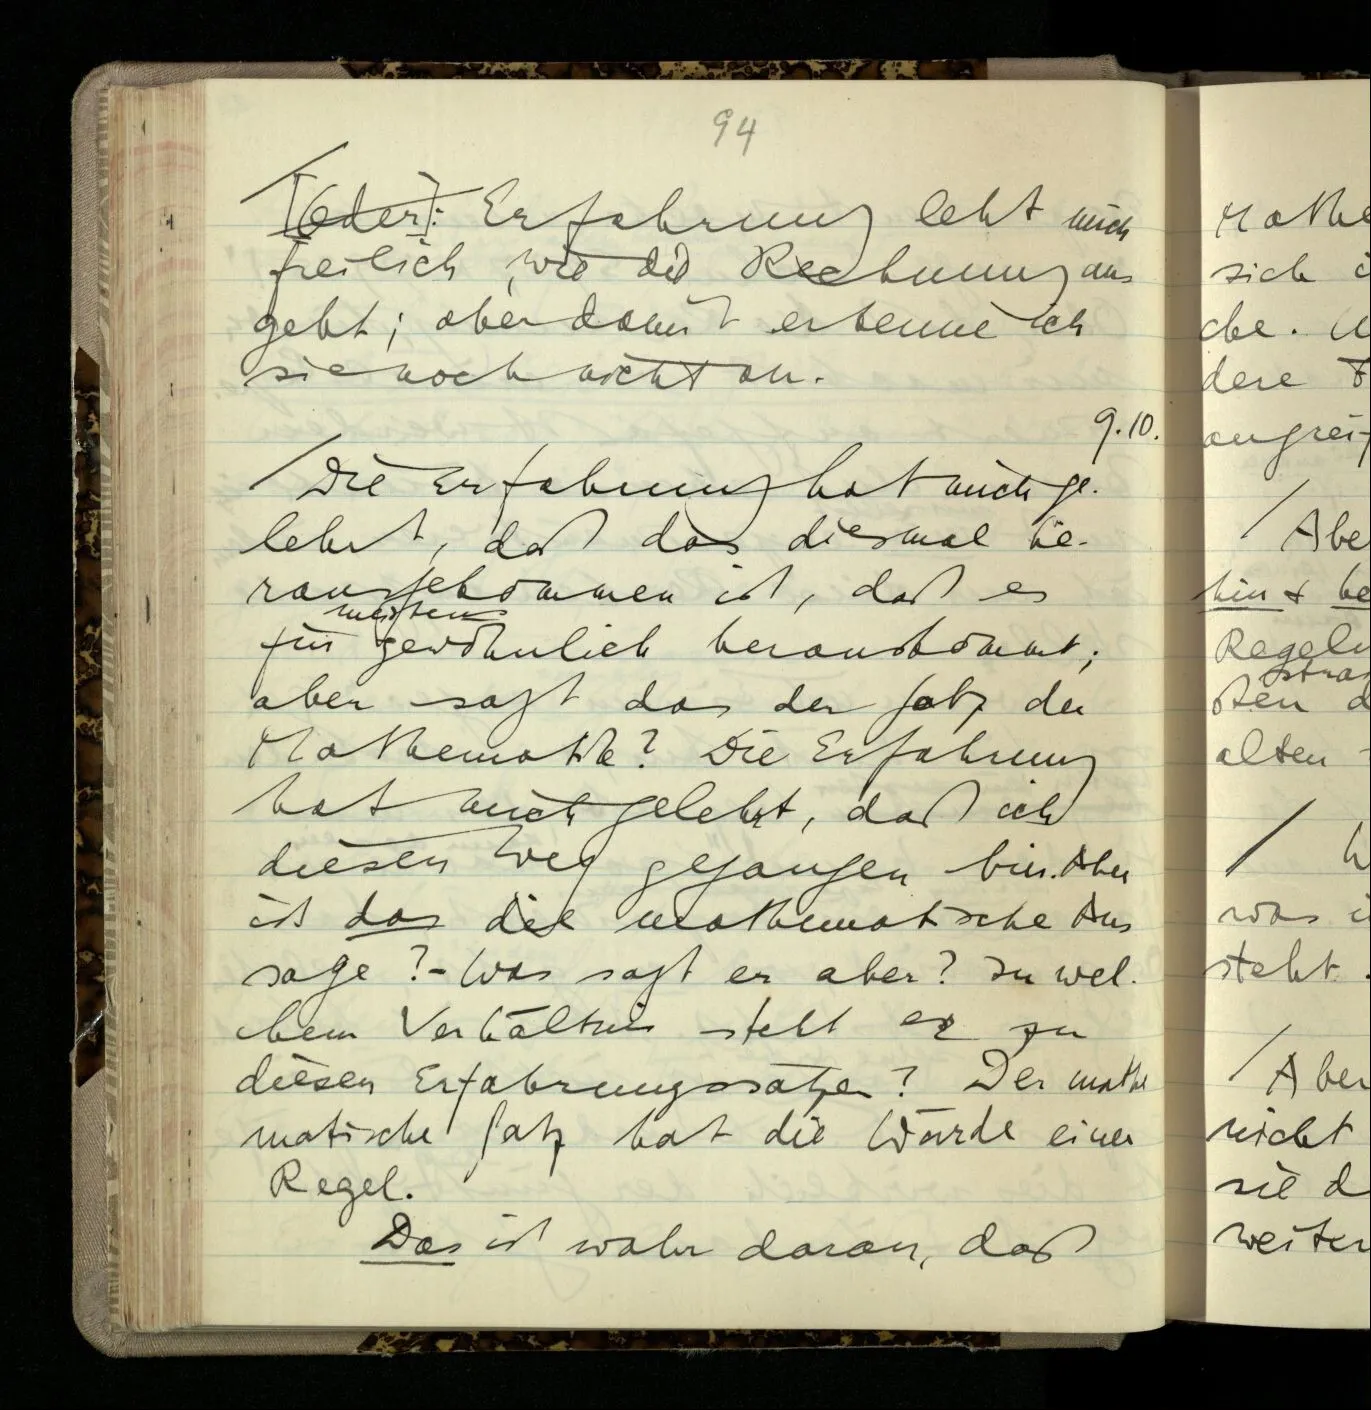 94
/ [Oder]: Erfahrung lehrt mich
freilich, wie die Rechnung aus
geht; aber damit erkenne ich
sie noch nicht an.
9.10.
/ Die Erfahrung hat mich ge-
lehrt, daß das diesmal he-
rausgekommen ist, daß es
meistens
für gewöhnlich herauskommt;
aber sagt das der Satz der
Mathematik? Die Erfahrung
hat mich gelehrt, daß ich
diesen Weg gegangen bin. Aber
ist das die mathematische Aus
sage? – Was sagt er aber? In wel-
chem Verhältnis steht er zu
diesen Erfahrungssätzen? Der mathe
matische Satz hat die Würde einer
Regel.
Das ist wahr daran, daß
Mathe
sich
che.
dere
angreif
/ Abe
hin & he
Regeln
stras
sten d
alten
/ W
was i
steht.
/ Aber
nicht
sie d
weiter